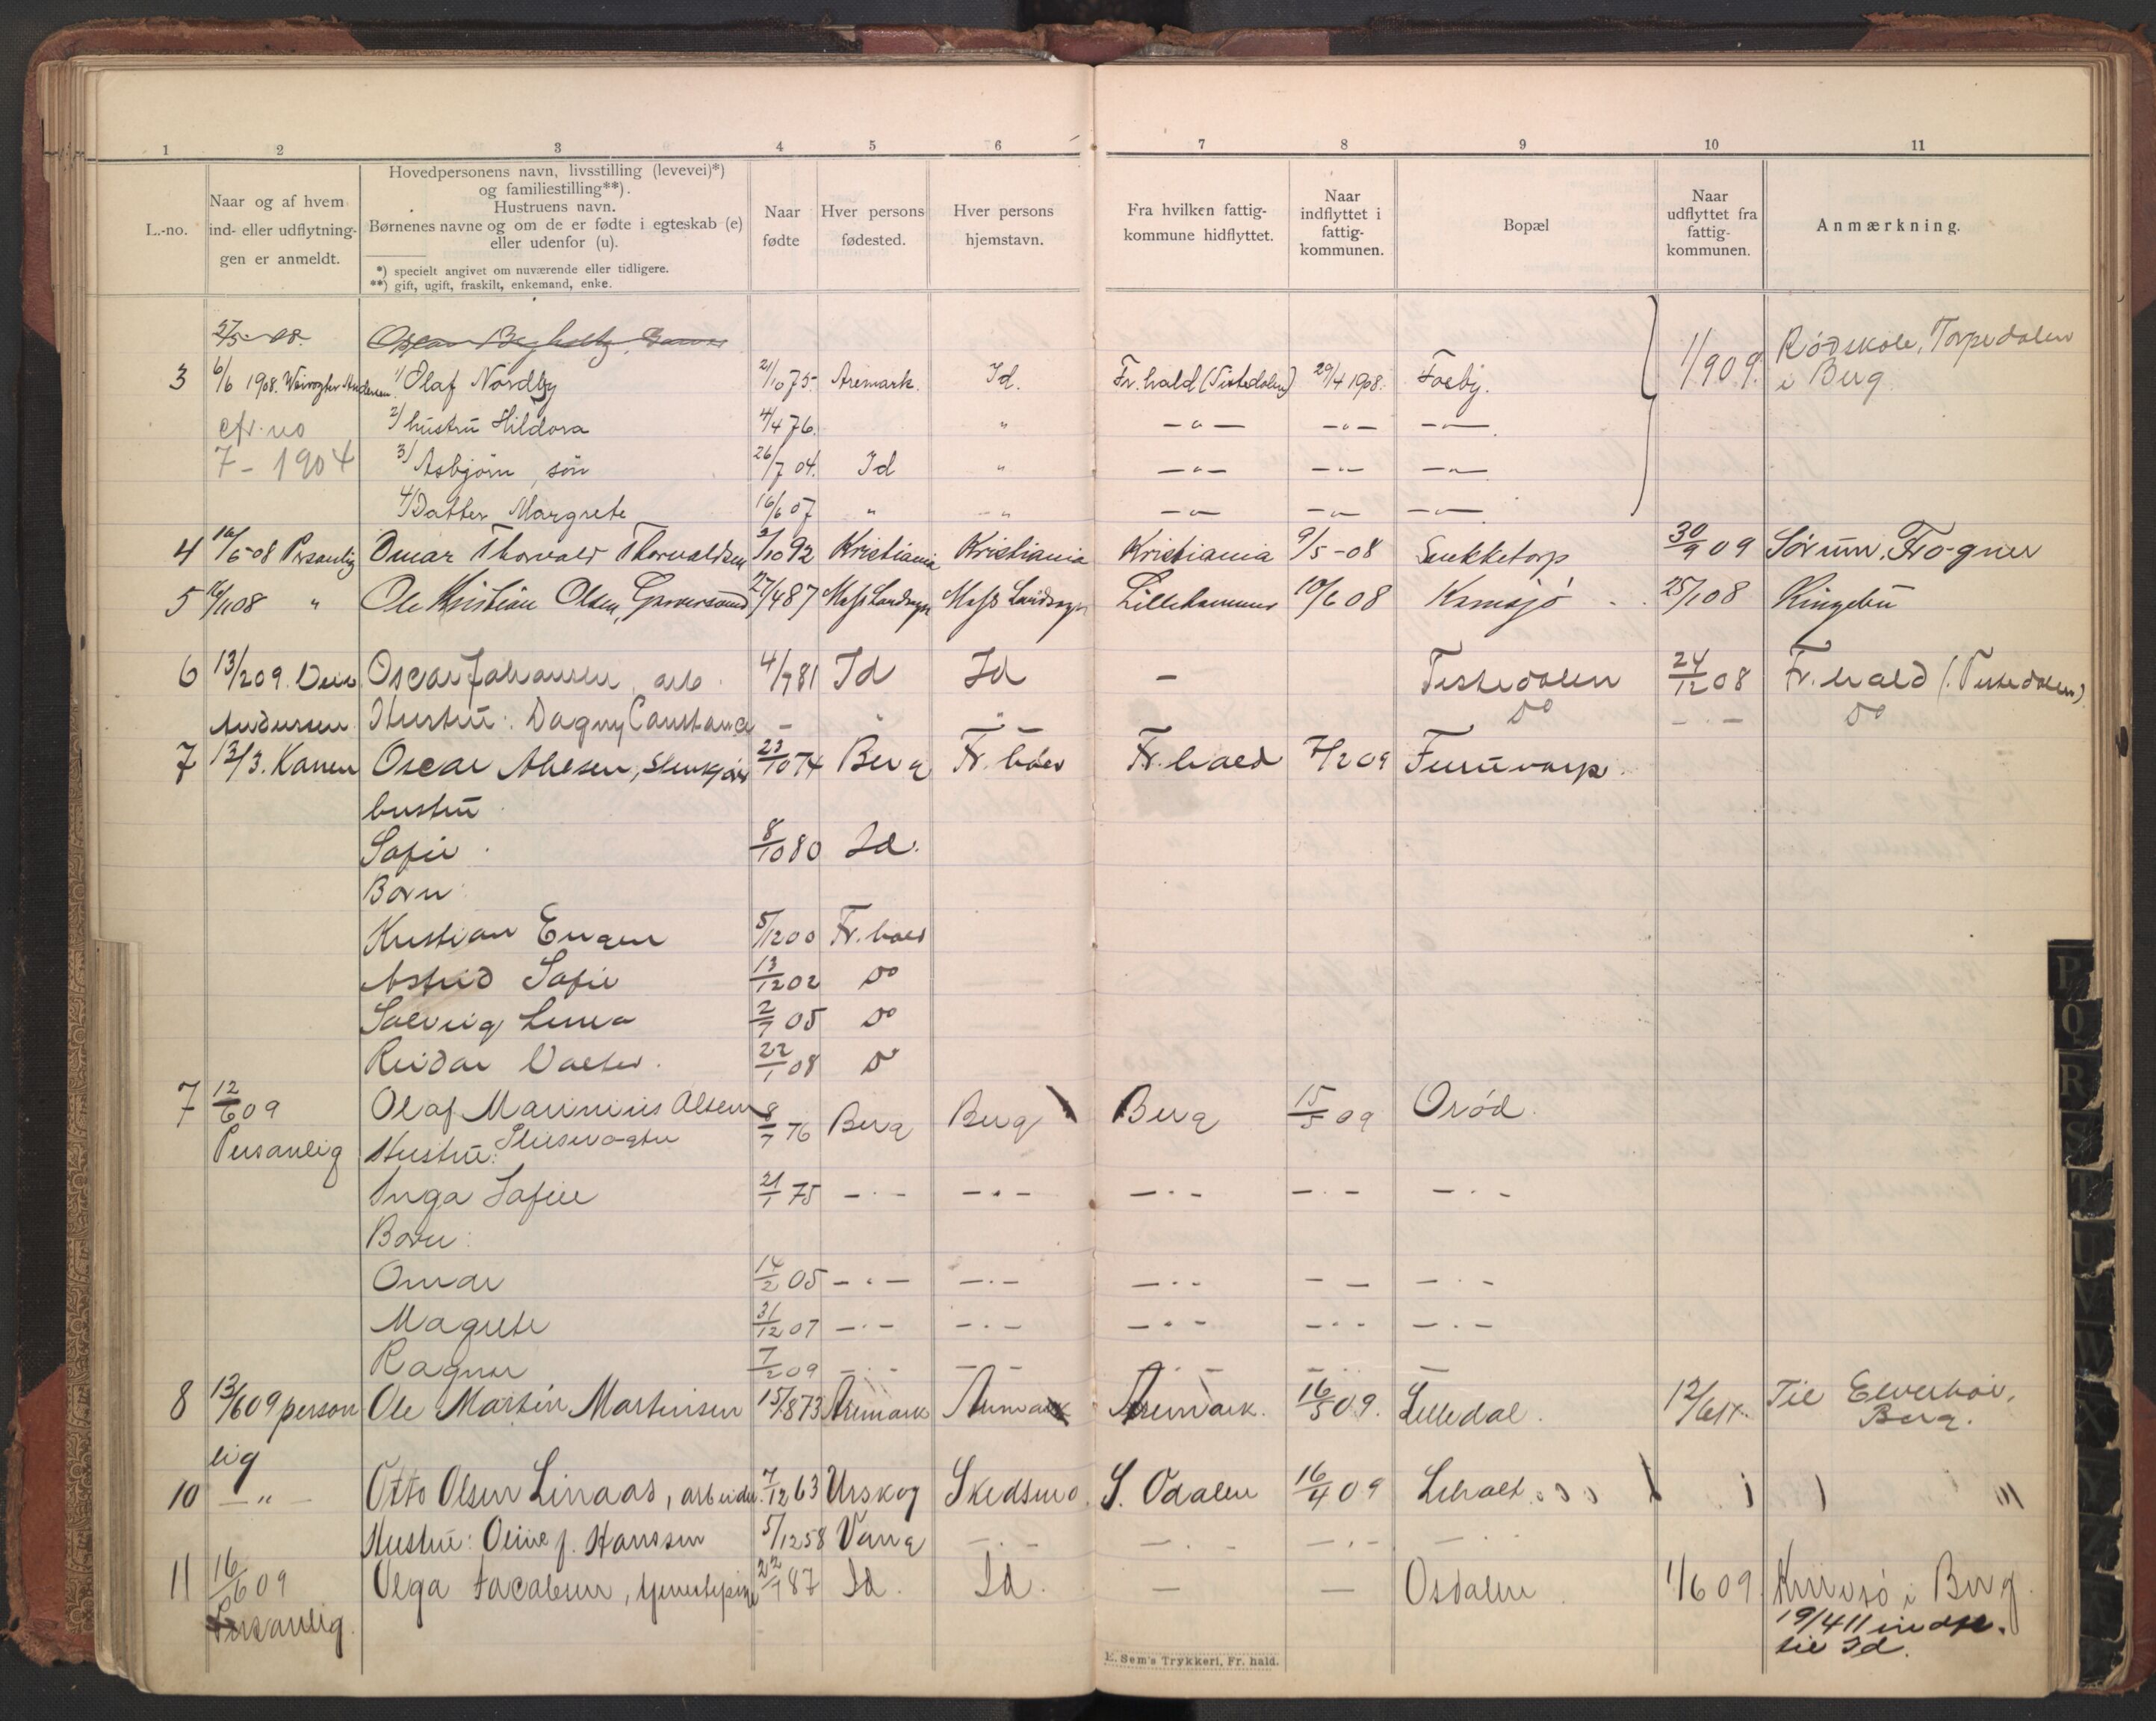 1 2 3 4 5 6 7 8 9 10 11
L.-no.
Naar og af hvem
ind- eller udflytnin-
gen er anmeldt.
Hovedpersonens navn, livsstilling (levevei)*)
og familiestilling**).
Hustruens navn.
Børnenes navne og om de er fødte i egteskab (e)
eller udenfor (u).
*) specielt angivet om nuværende eller tidligere.
**) gift, ugift, fraskilt, enkemand, enke.
Naar
fødte
Hver persons
fødested.
Hver persons
hjemstavn.
Fra hvilken fattig-
kommune hidflyttet.
Naar
indflyttet i
fattig-
kommunen.
Bopæl
Naar
udflyttet fra
fattig-
kommunen.
Anmærkning.
Rødskole, Torpedalen
3 6/6 1908. Andersen 1/ Olaf Nordby 21/10 75 Aremark. Id. Fr.hald (Tistedalen) 29/4 1908. Foeby. 1/9 09. i Berg
cfr. no 2/ hustru Hildora 4/4 76. " —"— —"— —"—
7 - 1904 3/ Asbjørn, søn 26/7 04. Id " —"— —"— —"—
4/ Datter Margrete 16/6 07 " " —"— —"— —"—
4 16/5-08 Personlig Omar Thorvald Thorvaldsen 3/10 92 Kristiania Kristiania Kristiania 9/5-08 30/9 09 Sørum, Frogner
5 16/11 08 " Ole Kristian Olsen, 27/4 87 Lillehammer 10/6 08 Kornsjø 25/1 08 Ringebu
6 13/2 09. Oscar Johansen, arb. 4/7 81 Id Id — Tistedalen 24/12 08 Fr.hald (Tistedalen)
Andersen Hustru: Dagny Constance — " " Do — " — Do
7 13/3. Karren Oscar Ahlsen, 23/10 74 Berg Fr.hald Fr.hald 7/2 09 Furuvarp.
hustru
Sofie 8/10 80 Id.
Børn:
Kristian Eugen 5/12 00 Fr.hald
Astrid Sofie 13/12 02 Do
Solveig Linea 2/7 05 Do
Reidar Valter. 22/1 08 Do
7 12/6 09 Olaf Marinius Olsen 8/7 76 Berg Berg Berg 15/5 09 Orød.
Personlig Hustru:
Inga Sofie 21/1 75 —"— —"— —"— —"— —"—
Børn:
Omar 14/2 05 —"— —"— —"— — — —"—
Magrete 31/12 07 —"— —"— —"— —"— —"—
Ragnar 7/2 09 —"— — — —"— —"— —
8 13/6 09 person Ole Martin Martinsen 15/8 73 Aremark Aremark Aremark. 16/5 09. Lilledal. 12/6 11. Til Elverhøi,
Berg.
lig
10 —"— Otto Olsen Linaas, arbeider. 7/12 63 Urskog Skedsmo S. Odalen 16/4 09
Hustru: Oline f. Hanssen 5/12 58 Vang —"— —"— —"— —"—
11 16/6 09 Olga Jacobsen, tjenestepige 22/7 87 Id. Id. — — Osdalen 1/6 09 i Berg.
Personlig. 19/4 11 indfl.
til Id.
E. Sem's Trykkeri, Fr. hald.
P
Q
R
S
T
U
V
W
X
Y
Z